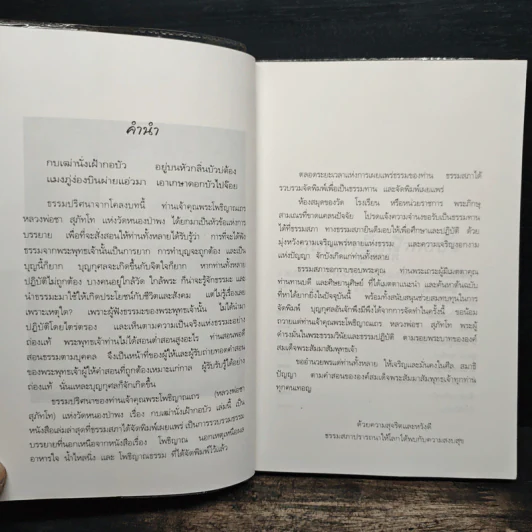 คำนำ
กบเฒ่านั่งเฝ้ากอบัว อยู่บนหัวกลิ่นบัวบ่ต้อง
แมงภู่ง่องบินผ่ายแอ่วมา เอาเกษาดอกบัวไปจ้อย
ธรรมปริศนาจากโคลงบทนี้ ท่านเจ้าคุณพระโพธิญาณเถร
หลวงพ่อชา สุภัทโท แห่งวัดหนองป่าพง ได้ยกมาเป็นหัวข้อแห่งการ
บรรยาย เพื่อที่จะสั่งสอนให้ท่านทั้งหลายได้รับรู้ว่า การที่จะได้ฟัง
ธรรมจากพระพุทธเจ้านั้นเป็นการยาก การทำบุญจะถูกต้อง และเป็น
บุญนี้ก็ยาก บุญกุศลจะเกิดขึ้นกับจิตใจก็ยาก หากท่านทั้งหลาย
ปฏิบัติไม่ถูกต้อง บางคนอยู่ใกล้วัด ใกล้พระ ก็น่าจะรู้จักธรรมะ และ
นำธรรมะมาใช้ให้เกิดประโยชน์กับชีวิตและสังคม แต่ไม่รู้เรื่องเลย
เพราะเหตุใด? เพราะผู้ฟังธรรมะของพระพุทธเจ้านั้น ไม่ได้นำมา
ปฏิบัติโดยไตร่ตรอง และเห็นตามความเป็นจริงแห่งธรรมะอย่าง
ถ่องแท้ พระพุทธเจ้าท่านไม่ได้สอนต่ำสอนสูงอะไร ท่านสอนพอดี
สอนธรรมตามบุคคล จึงเป็นหน้าที่ของผู้ให้และผู้รับถ่ายทอดคำสอน
ของพระพุทธเจ้าผู้ให้คำสอนที่ถูกต้องเหมาะแก่กาล ผู้รับรับรู้ได้อย่าง
ถ่องแท้ นั่นแหละบุญกุศลก็จักเกิดขึ้น
ธรรมปริศนาของท่านเจ้าคุณพระโพธิญาณเถร (หลวงพ่อชา
สุภัทโท) แห่งวัดหนองป่าพง เรื่อง กบเฒ่านั่งเฝ้ากอบัว เล่มนี้ เป็น
หนังสือเล่มล่าสุดที่ธรรมสภาได้จัดพิมพ์เผยแพร่ เป็นการรวบรวมธรรม
บรรยายที่นอกเหนือจากหนังสือเรื่อง โพธิญาณ นอกเหตุเหนือผล
อาหารใจ น้ำไหลนิ่ง และ โพธิญาณธรรม ที่ได้จัดพิมพ์ไว้แล้ว
ตลอดระยะเวลาแห่งการเผยแพร่ธรรมของท่าน ธรรมสภาได้
รวบรวมจัดพิมพ์เพื่อเป็นธรรมทาน และจัดพิมพ์เผยแพร่
ห้องสมุดของวัด โรงเรียน หรือหน่วยราชการ พระภิกษุ
สามเณรที่ขาดแคลนปัจจัย โปรดแจ้งความจำนงขอรับเป็นธรรมทาน
ได้ที่ธรรมสภา ทางธรรมสภายินดีมอบให้เพื่อศึกษาและปฏิบัติ ด้วย
มุ่งหวังความเจริญแพร่หลายแห่งธรรม และความเจริญงอกงาม
แห่งปัญญา จักบังเกิดแก่ท่านทั้งหลาย
ธรรมสภาขอกราบขอบพระคุณ ท่านพระเถระผู้มีเมตตาคุณ
ท่านทานบดี และศิษยานุศิษย์ ที่ได้เมตตาแนะนำ และค้นหาต้นฉบับ
ที่หาได้ยากยิ่งในปัจจุบันนี้ พร้อมทั้งสนับสนุนช่วยสมทบทุนในการ
จัดพิมพ์ บุญกุศลอันจักพึงมีพึงได้จากการจัดทำในครั้งนี้ ขอน้อม
ถวายแด่ท่านเจ้าคุณพระโพธิญาณเถร หลวงพ่อชา สุภัทโท พระผู้
ดำรงมั่นในพระธรรมวินัยและข้อวัตรปฏิบัติ ตามรอยพระบาทขององค์
สมเด็จพระสัมมาสัมพุทธเจ้า
ขออำนวยพรแด่ท่านทั้งหลาย ให้เจริญและมั่นคงในศีล, สมาธิ
ปัญญา ตามคำสอนขององค์สมเด็จพระสัมมาสัมพุทธเจ้าทุกท่าน
ทุกคนเทอญ.
ด้วยความสุจริตและหวังดี
ธรรมสภาปรารถนาให้โลกได้พบกับความสงบสุข